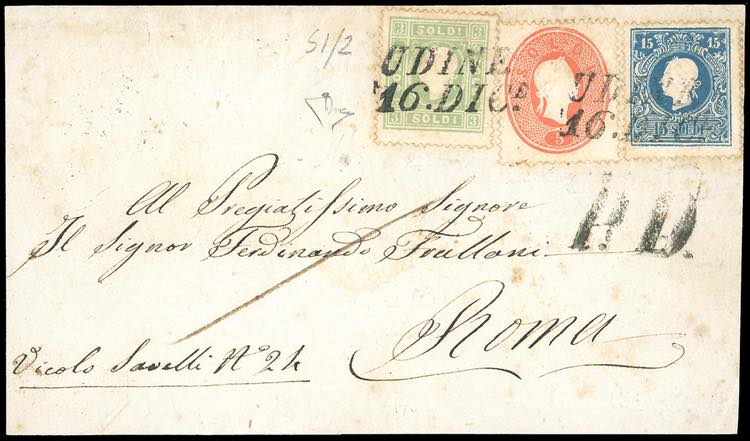 S1/2
3 SOLDI 3
SOLDI
5
15 15
15 SOLDI
UDINE
16.DICE
16.
P.D.
Al Pregiatissimo Signore
Il Signor Ferdinando Fralloni
Roma
Vicolo Savelli N° 24